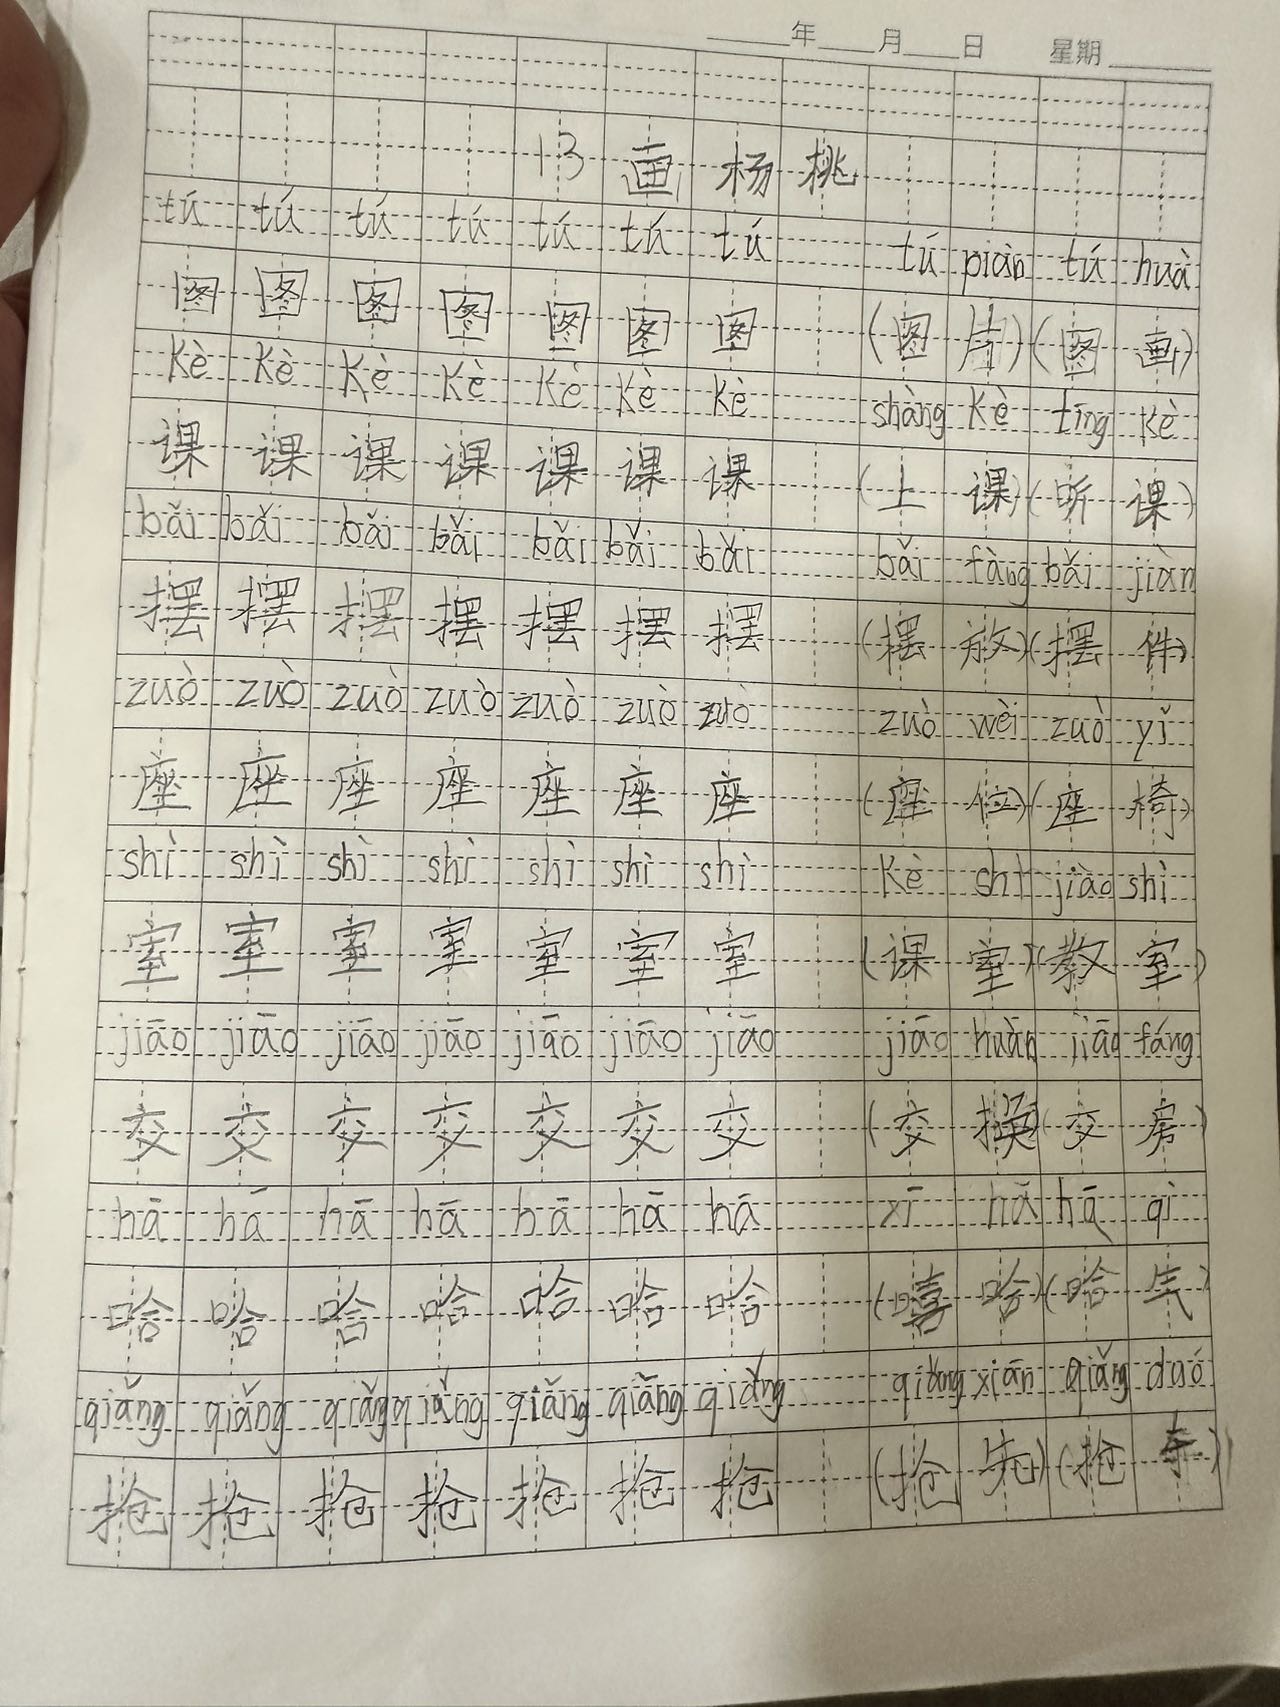 年 月 日 星期
13 画 杨 桃
tú tú tú tú tú tú tú tú piàn tú huà
图 图 图 图 图 图 图 (图 片) (图 画)
kè kè kè kè kè kè kè shàng kè tīng kè
课 课 课 课 课 课 课 (上 课) (听 课)
bǎi bǎi bǎi bǎi bǎi bǎi bǎi bǎi fàng bǎi jiàn
摆 摆 摆 摆 摆 摆 摆 (摆 放) (摆 件)
zuò zuò zuò zuò zuò zuò zuò zuò wèi zuò yǐ
座 座 座 座 座 座 座 (座 位) (座 椅)
shì shì shì shì shì shì shì kè shì jiào shì
室 室 室 室 室 室 室 (课 室) (教 室)
jiāo jiāo jiāo jiāo jiāo jiāo jiāo jiāo huàn jiāo fáng
交 交 交 交 交 交 交 (交 换) (交 房)
hā hā hā hā hā hā hā xī hā hā qì
哈 哈 哈 哈 哈 哈 哈 (嘻 哈) (哈 气)
qiǎng qiǎng qiǎng qiǎng qiǎng qiǎng qiǎng qiǎng xiān qiǎng duó
抢 抢 抢 抢 抢 抢 抢 (抢 先) (抢 夺)